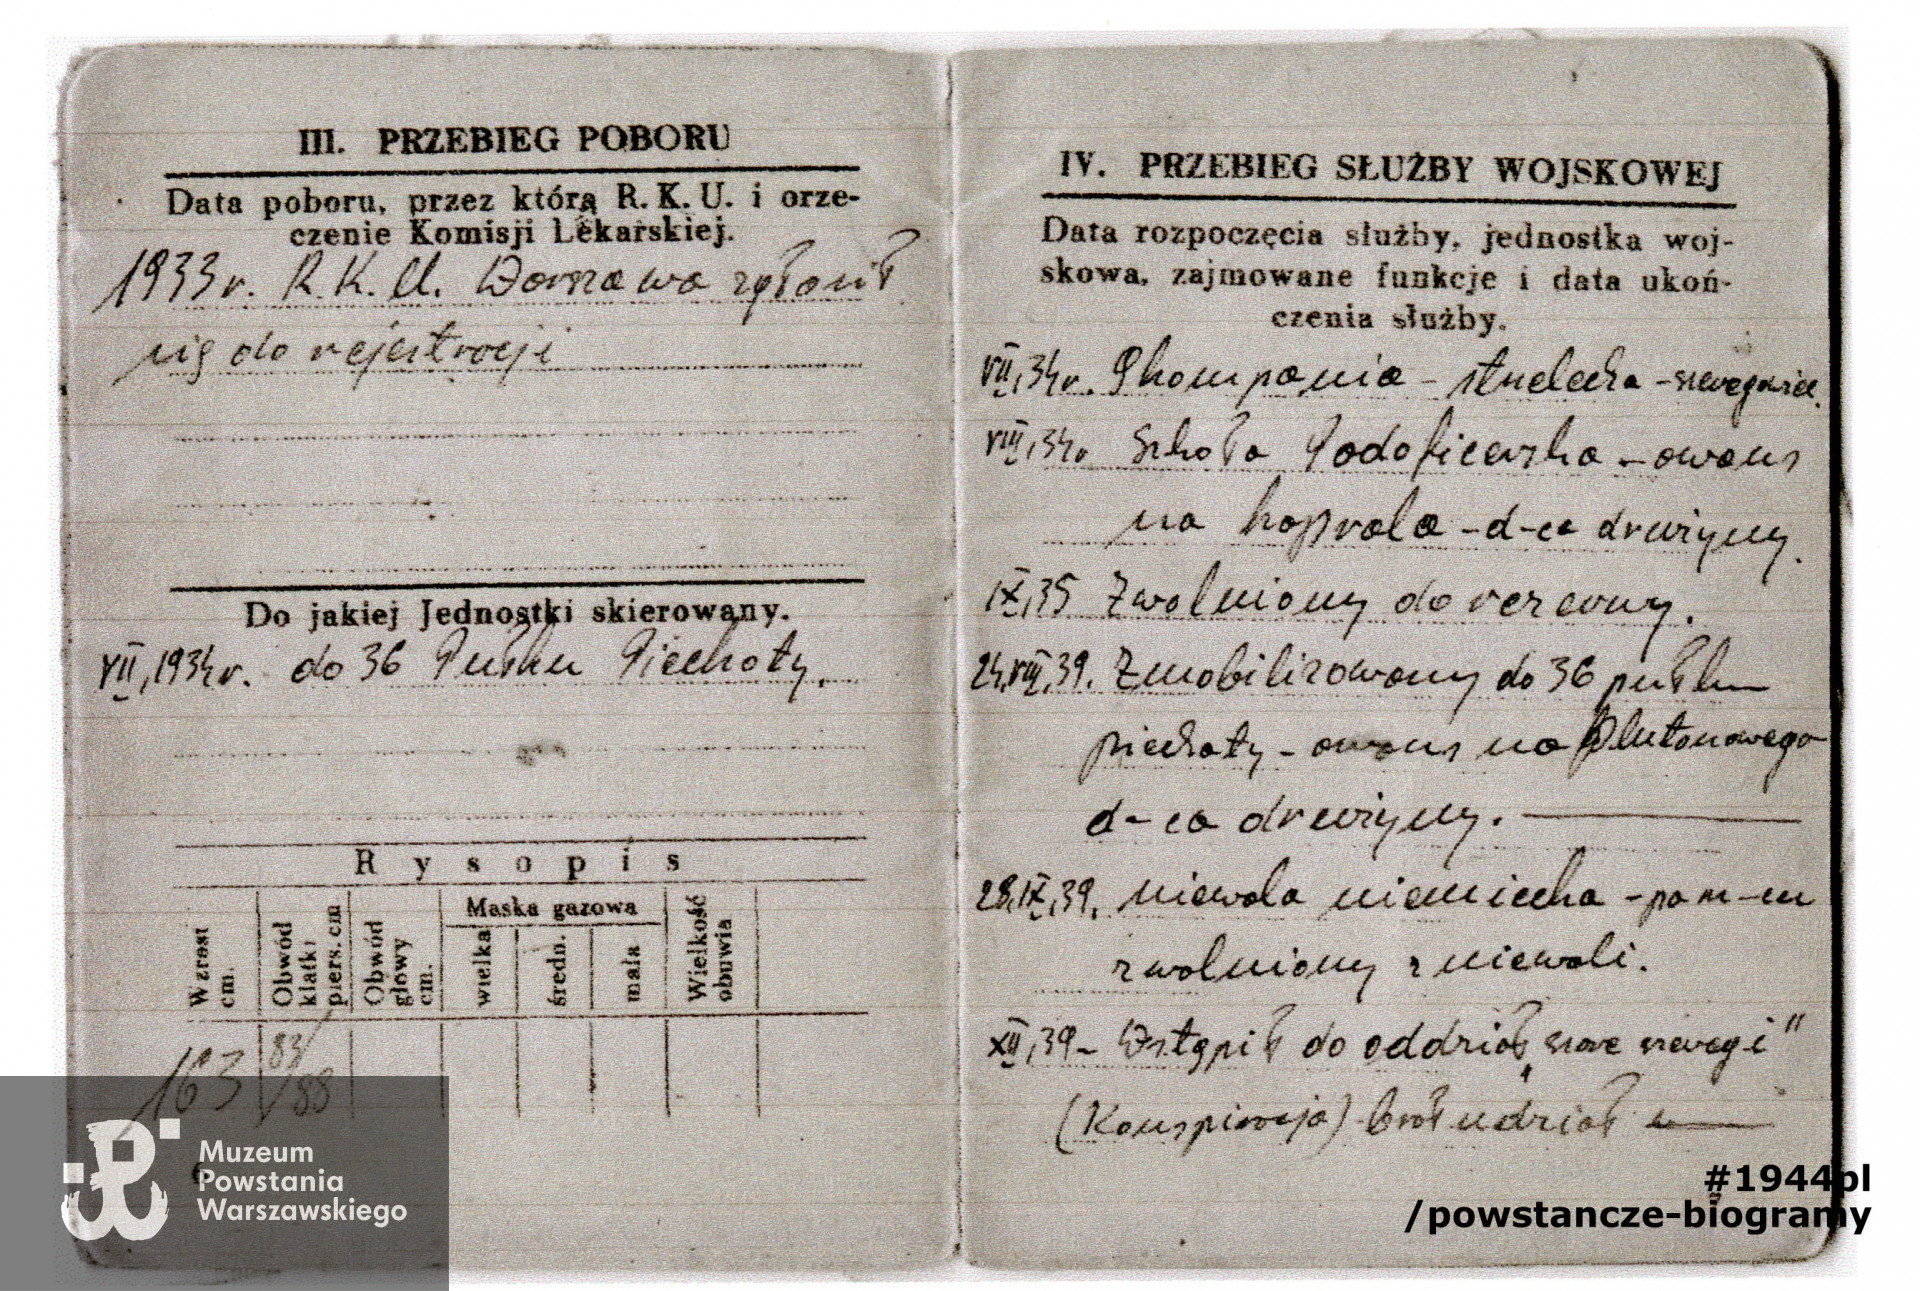 III. PRZEBIEG POBORU
Data poboru, przez którą R. K. U. i orze-
czenie Komisji Lekarskiej.
1933 r. R. K. U. Warszawa zgłosił
się do rejestracji
Do jakiej Jednostki skierowany.
VII, 1934 r. do 36 Pułku Piechoty.
Rysopis
Wzrost cm.
Obwód klatki piers. cm
Obwód głowy cm.
Maska gazowa
wielka
średn.
mała
Wielkość obuwia
163
83/88
6
IV. PRZEBIEG SŁUŻBY WOJSKOWEJ
Data rozpoczęcia służby, jednostka woj-
skowa, zajmowane funkcje i data ukoń-
czenia służby.
VII, 34 r. kompania - strzelecka - szeregowiec.
VIII, 34 r Szkoła Podoficerska - awans
na kaprala - d-ca drużyny.
IX, 35 Zwolniony do rezerwy.
24, VIII, 39. Zmobilizowany do 36 pułku
piechoty - awans na Plutonowego
d-ca drużyny.
28, IX, 39. niewola niemiecka - pam-cu
zwolniony z niewoli.
XII, 39 - Wstąpił do oddział „szare szeregi"
(Konspiracja) brał udział w
Muzeum
Powstania
Warszawskiego
#1944pl
/powstancze-biogramy